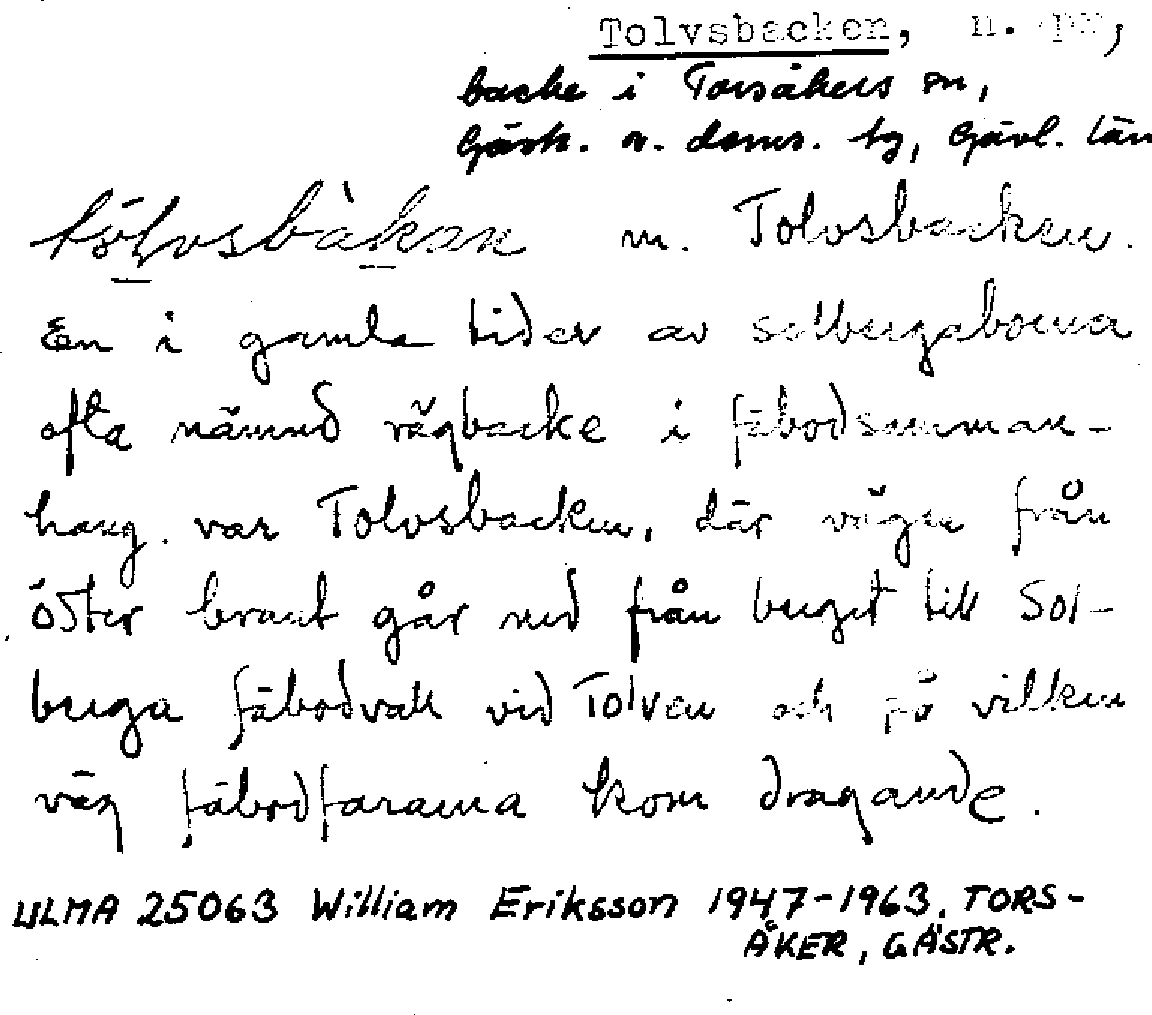 Tolvsbacken, n. pr,
backe i Torsåkers sn,
Gästr. v. doms. tg, Gävl. län
tòlvsbàkan m. Tolvsbacken.
En i gamla tider av solbergaborna
ofta nämnd vägbacke i fäbodsamman-
hang. var Tolvsbacken, där vägen från
öster brant går ned från berget till Sol-
berga fäbodvall vid Tolven och på vilken
väg fäbodfararna kom dragande.
ULMA 25063 William Eriksson 1947-1963. TORS-
ÅKER, GÄSTR.